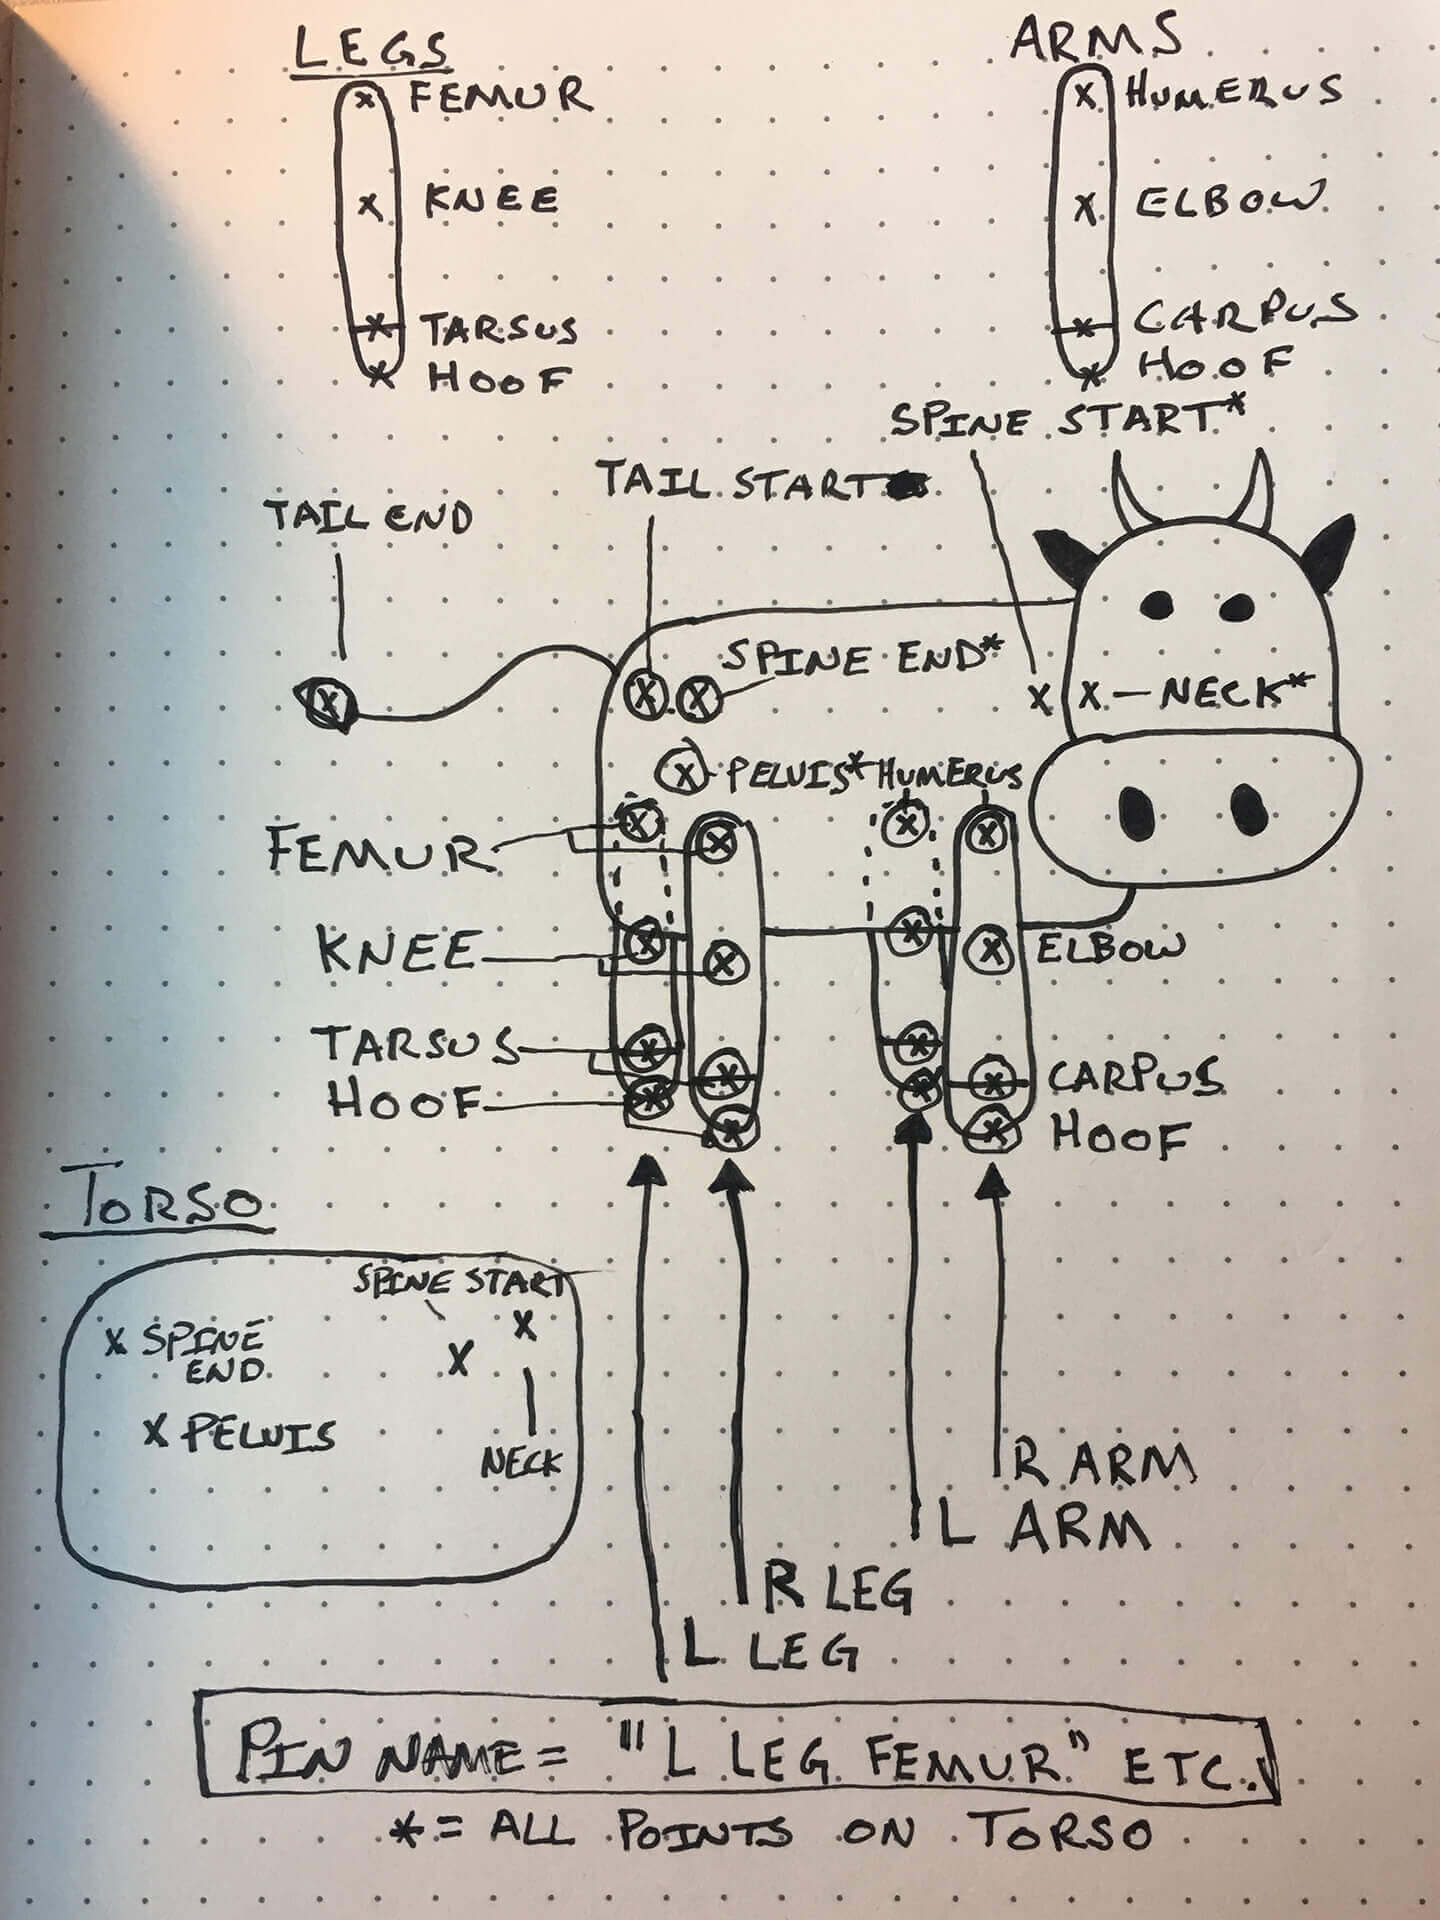 LEGS
FEMUR
KNEE
TARSUS
HOOF
ARMS
HUMERUS
ELBOW
CARPUS
HOOF
SPINE START*
TAIL START
TAIL END
SPINE END*
X-NECK*
PELVIS*
HUMERUS
FEMUR
KNEE
ELBOW
TARSUS
HOOF
CARPUS
HOOF
TORSO
SPINE START
X SPINE
END
X PELVIS
NECK
R ARM
L ARM
R LEG
L LEG
PIN NAME = "L LEG FEMUR" ETC.
*= ALL POINTS ON TORSO